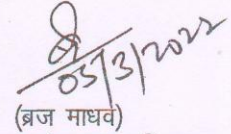 05/3/2022
(ब्रज माधव)